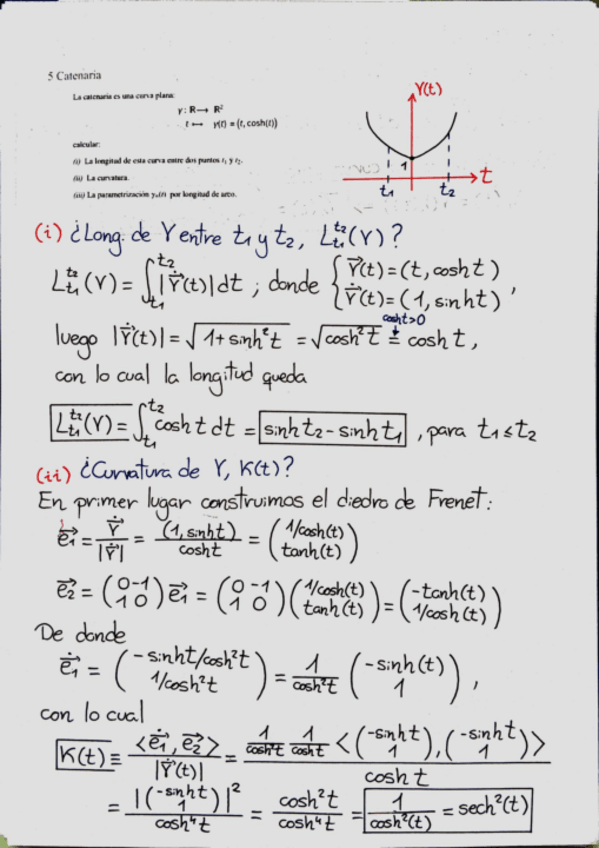 5 Catenaria
La catenaria es una curva plana:
γ : R → R²
t ↦ γ(t) = (t, cosh(t))
calcular:
(i) La longitud de esta curva entre dos puntos t₁ y t₂.
(ii) La curvatura.
(iii) La parametrización γₙ(t) por longitud de arco.
γ(t)
1
t
t₁ t₂
(i) ¿Long. de γ entre t₁ y t₂, L_{t₁}^{t₂}(γ)?
L_{t₁}^{t₂}(γ) = ∫_{t₁}^{t₂} |γ⃗̇(t)| dt ; donde { γ⃗(t) = (t, cosh t)
γ⃗̇(t) = (1, sinh t) ,
cosh t > 0
luego |γ⃗̇(t)| = √(1 + sinh² t) = √(cosh² t) = cosh t,
con lo cual la longitud queda
L_{t₁}^{t₂}(γ) = ∫_{t₁}^{t₂} cosh t dt = sinh t₂ - sinh t₁ , para t₁ ≤ t₂
(ii) ¿Curvatura de γ, K(t)?
En primer lugar construimos el diedro de Frenet:
e⃗₁ = γ⃗̇ / |γ⃗̇| = (1, sinh t) / cosh t = (1/cosh(t) ; tanh(t))
e⃗₂ = (0 -1 ; 1 0) e⃗₁ = (0 -1 ; 1 0) (1/cosh(t) ; tanh(t)) = (-tanh(t) ; 1/cosh(t))
De donde
e⃗̇₁ = (-sinh t/cosh² t ; 1/cosh² t) = 1/cosh² t (-sinh(t) ; 1) ,
con lo cual
K(t) ≡ <e⃗̇₁, e⃗₂> / |γ⃗̇(t)| = 1/cosh² t 1/cosh t <(-sinh t ; 1), (-sinh t ; 1)> / cosh t
= |(-sinh t ; 1)|² / cosh⁴ t = cosh² t / cosh⁴ t = 1/cosh²(t) = sech²(t)